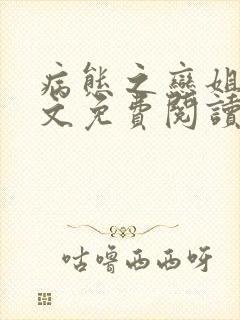 病態之戀姐
文免費閱讀
咕嚕西西呀